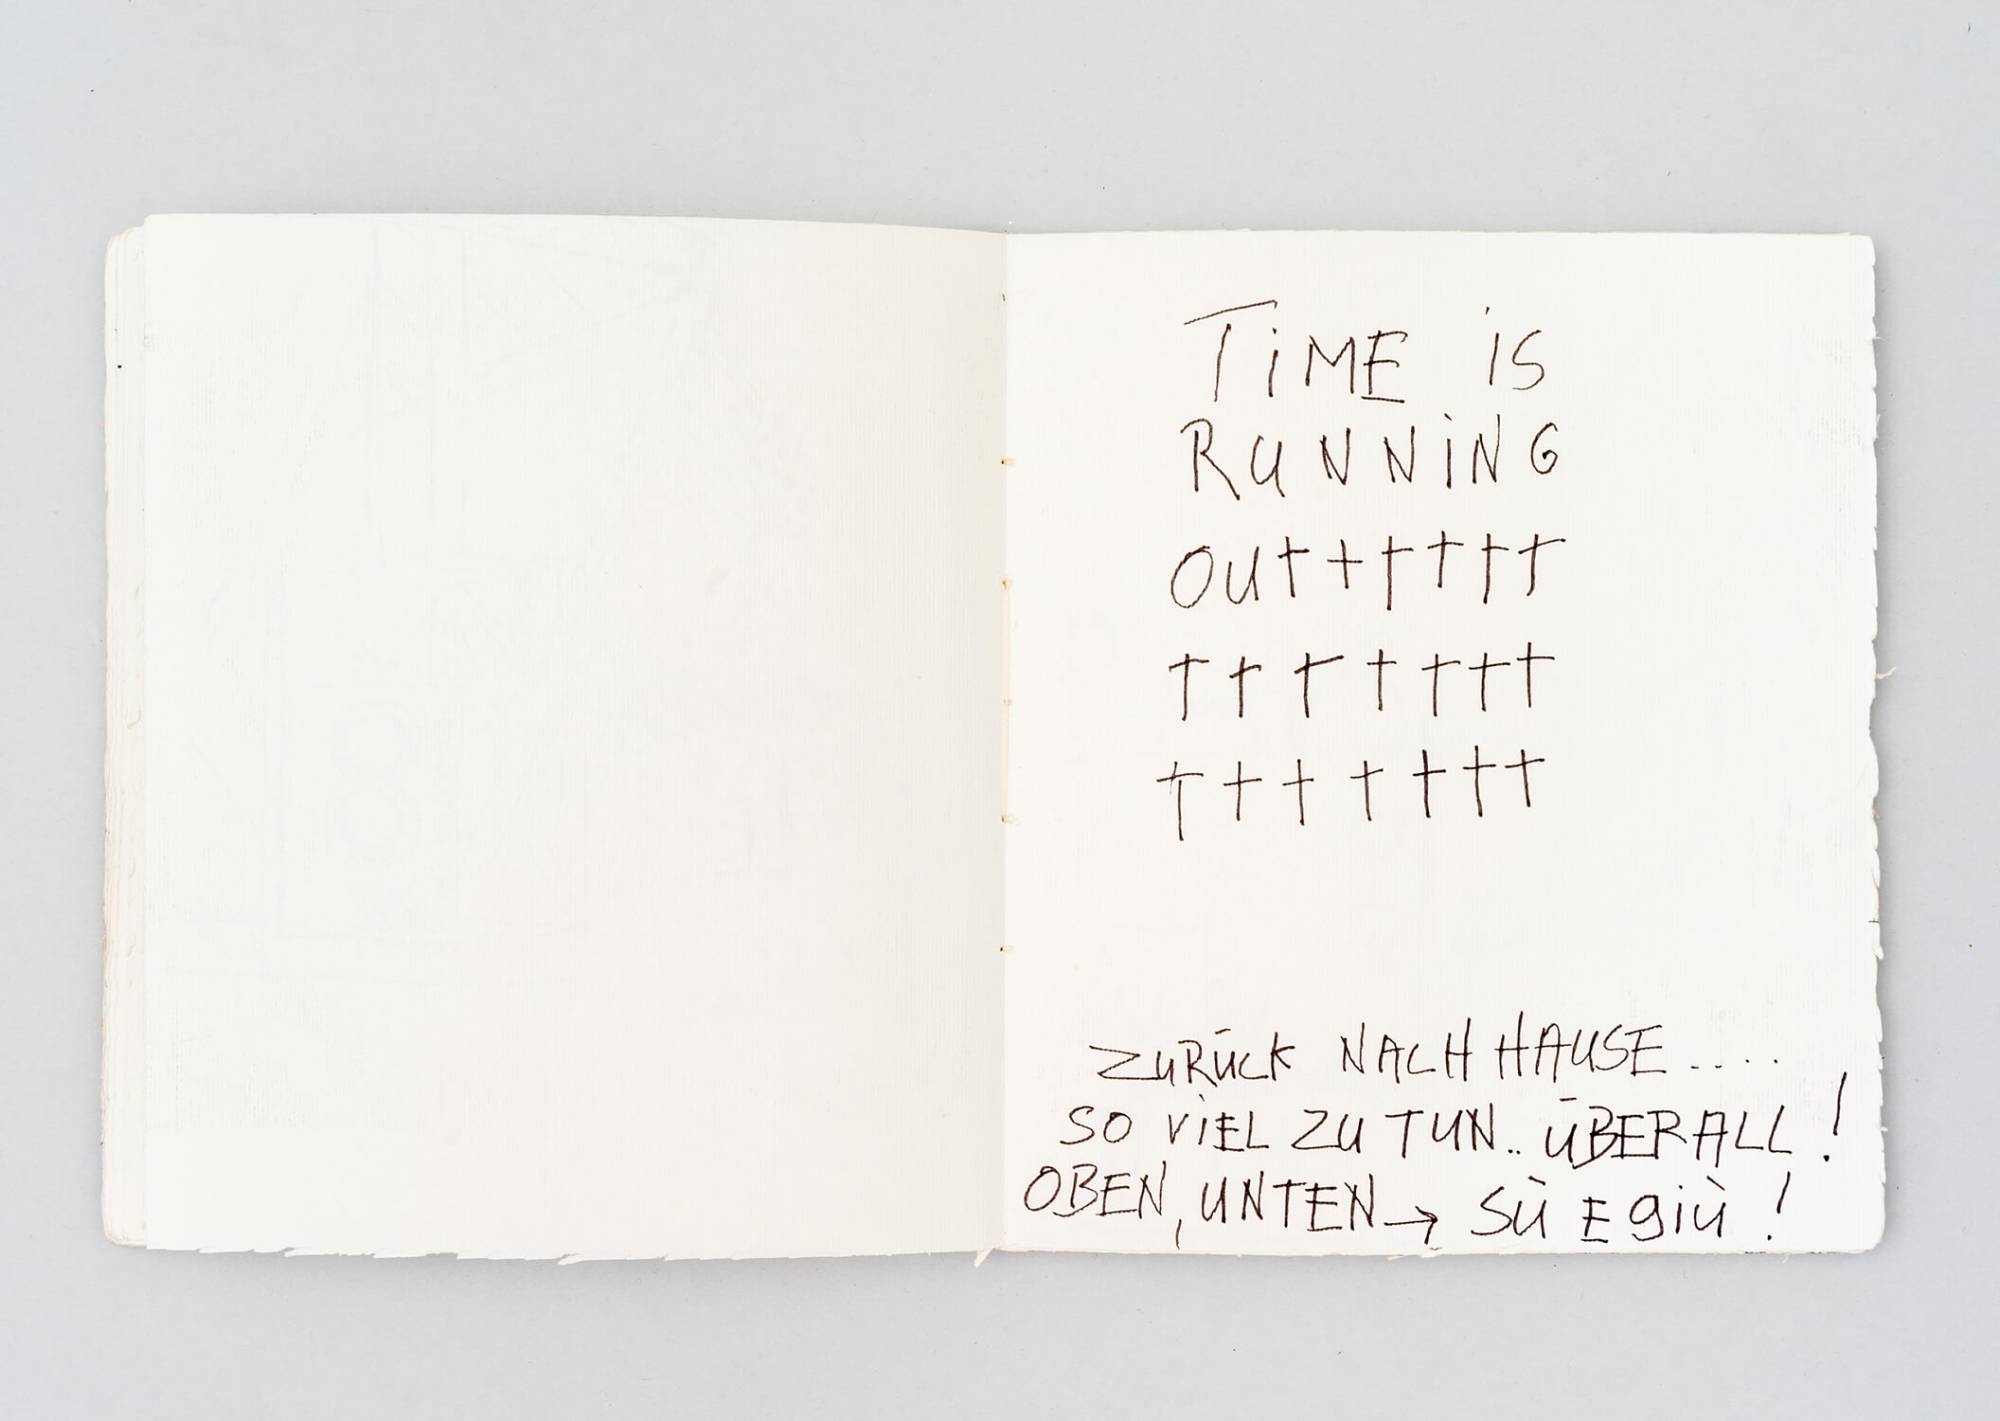 TiME iS
RUNNiNG
OU† † † † † †
† † † † † † †
† † † † † † †
ZURÜCK NACH HAUSE....
SO ViEL ZU TUN.. ÜBERALL!
OBEN, UNTEN → SÙ E giù!